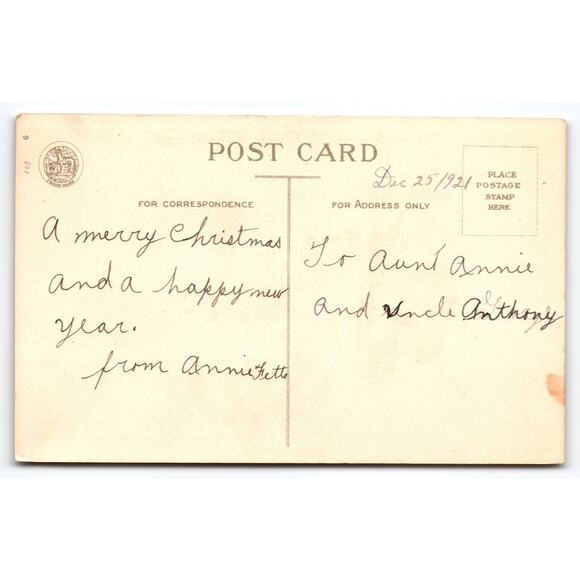 POST CARD
Dec 25/1921
PLACE
POSTAGE
STAMP
HERE
FOR CORRESPONDENCE
A merry Christmas
and a happy new
year.
from Annie Fette
FOR ADDRESS ONLY
To Aunt Annie
and uncle Anthony
6